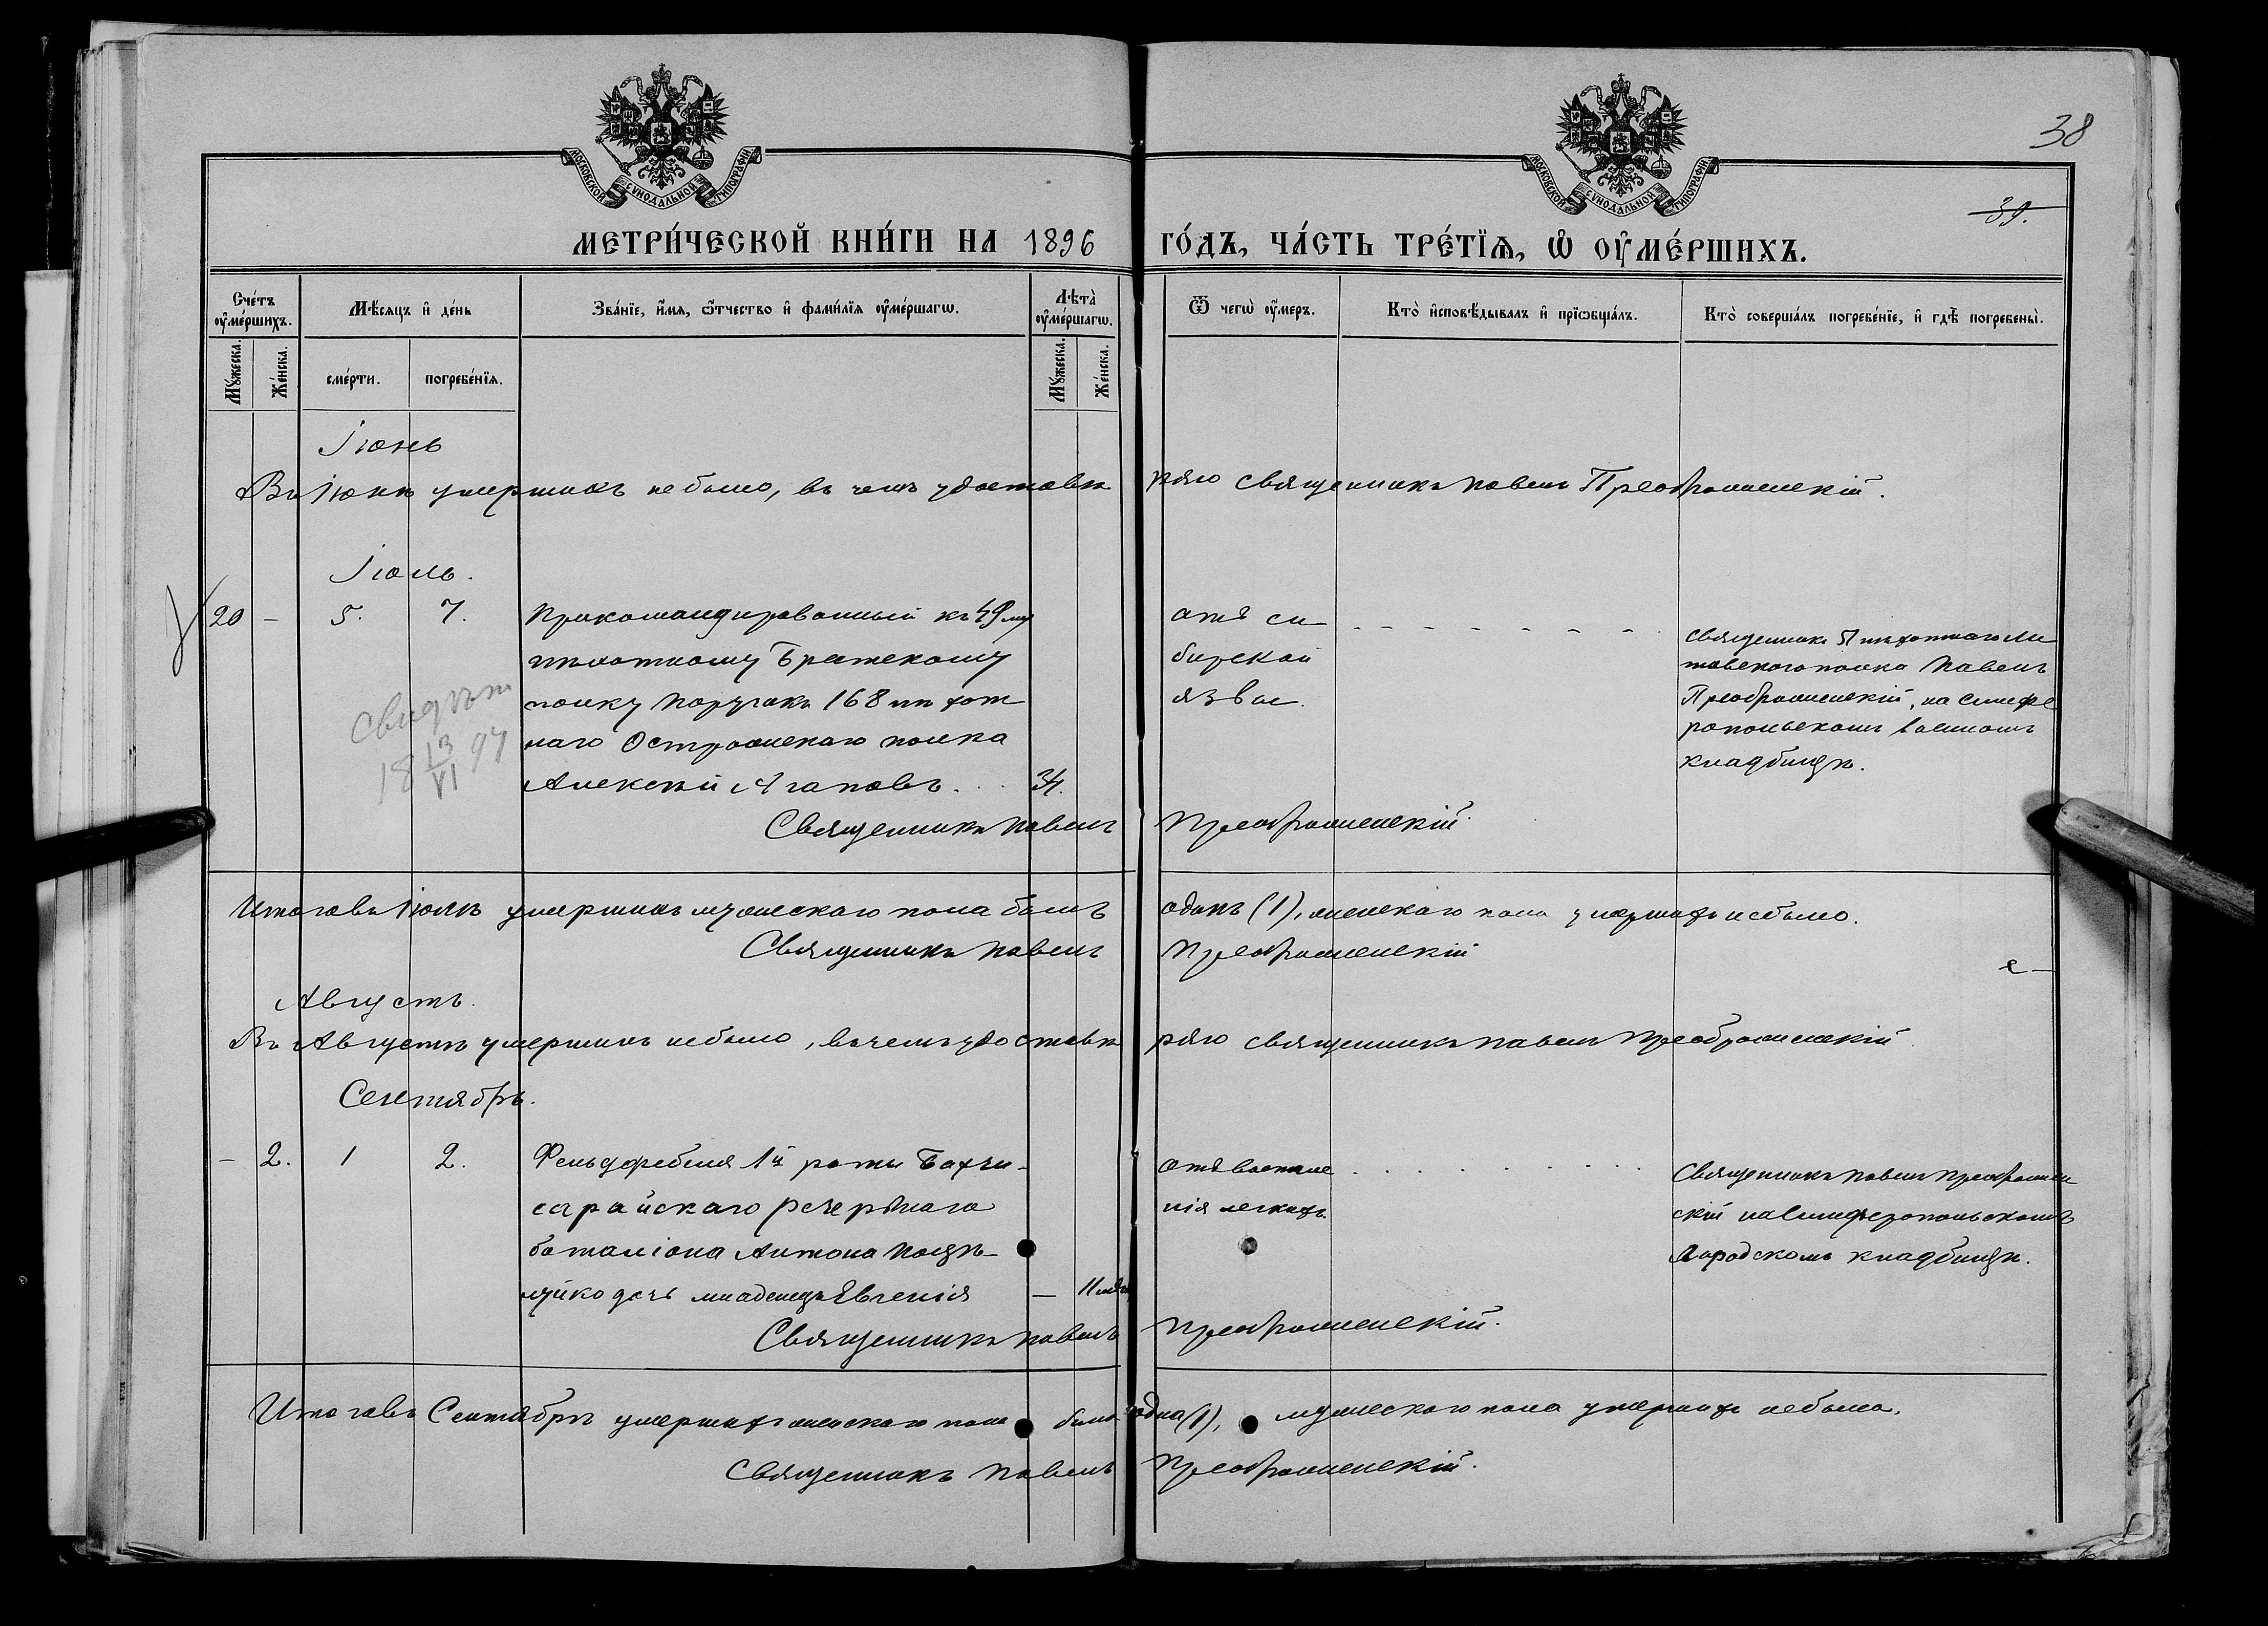 МОСКОВСКОЙ СУНОДАЛЬНОЙ ТИПОГРАФІИ
МОСКОВСКОЙ СУНОДАЛЬНОЙ ТИПОГРАФІИ
38
39.
МЕТРИ́ЧЕСКОЙ КНИ́ГИ НА 1896 ГО́ДЪ, ЧА́СТЬ ТРЕ́ТЇѦ, Ѡ ОУ҆МЕ́РШИХЪ.
Сче́тъ оу҆ме́ршихъ.
Мѣ́сяцъ и҆ де́нь
Зва́нїе, и҆́мѧ, ѻ҆́тчество и҆ фами́лїѧ оу҆ме́ршагѡ.
Лѣ́та оу҆ме́ршагѡ.
Ѿ чегѡ̀ оу҆́мер.
Кто̀ и҆сповѣ́дывалъ и҆ прїѡбща́лъ.
Кто̀ соверша́лъ погребе́нїе, и҆ гдѣ̀ погребены̀.
Мꙋ́жеска.
Же́нска.
сме́рти.
погребе́нїѧ.
Мꙋ́жеска.
Же́нска.
Іюнь
Въ Іюнѣ умершихъ не было, въ чемъ удостовѣряю священникъ Павелъ Преображенскій.
Іюль.
20 - 5. 7. Прикомандированный къ 49 му
пѣхотному Брестскому
полку Поручикъ 168 пѣхот
наго Острожскаго полка
Алексѣй Агаповъ. . . 34.
отъ си
бирской
язвы.
Священникъ 51 пѣхотнаго Ли
товскаго полка Павелъ
Преображенскій, на Симфе
ропольскомъ военномъ
кладбищѣ.
свидѣт
18 13/VI 97
Священникъ Павелъ Преображенскій.
Итого въ Іюлѣ умершихъ мужескаго пола былъ одинъ (1), женскаго пола умершихъ не было.
Священникъ Павелъ Преображенскій
Августъ.
Въ Августѣ умершихъ не было, въ чемъ удостовѣряю священникъ Павелъ Преображенскій.
Сентябрь.
- 2. 1 2. Фельдфебеля 1й роты Бахчи-
сарайскаго резервнаго
баталіона Антона Поцѣ-
луйко дочь младенецъ Евгенія — 11 мѣс.
отъ воспале
нія легкихъ
Священникъ Павелъ Преображен
скій на Симферопольскомъ
городскомъ кладбищѣ.
Священникъ Павелъ Преображенскій.
Итого въ Сентябрѣ умершихъ женскаго пола была одна (1), мужескаго пола умершихъ не было.
Священникъ Павелъ Преображенскій.